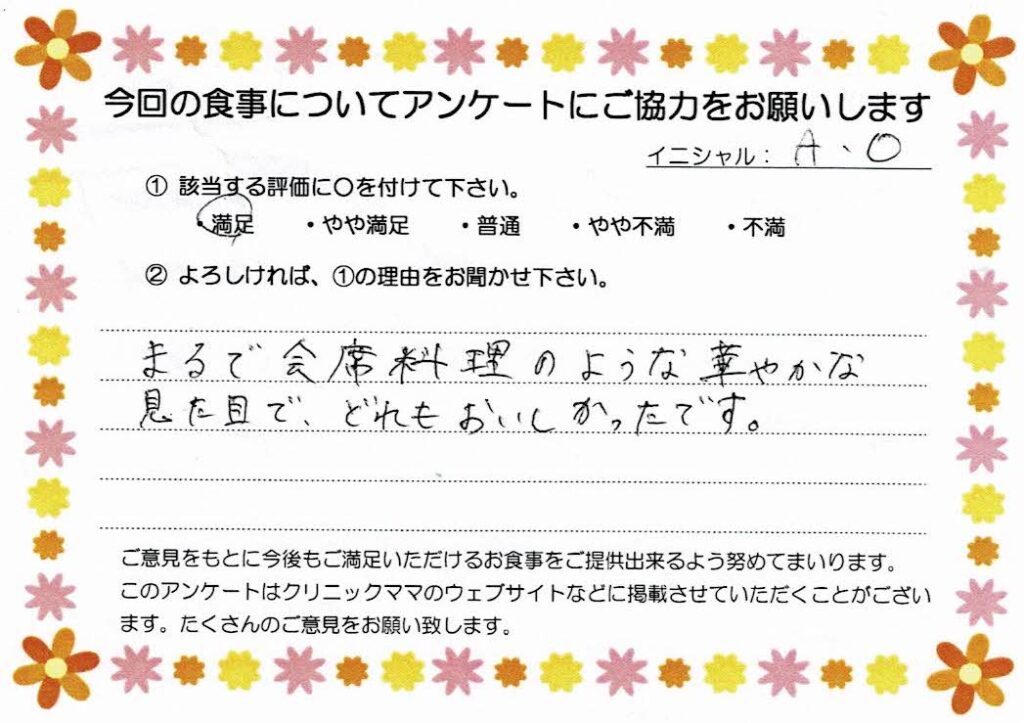 今回の食事についてアンケートにご協力をお願いします
イニシャル： A.O
① 該当する評価に〇を付けて下さい。
・満足 ・やや満足 ・普通 ・やや不満 ・不満
② よろしければ、①の理由をお聞かせ下さい。
まるで会席料理のような華やかな
見た目で、どれもおいしかったです。
ご意見をもとに今後もご満足いただけるお食事をご提供出来るよう努めてまいります。
このアンケートはクリニックママのウェブサイトなどに掲載させていただくことがござい
ます。たくさんのご意見をお願い致します。